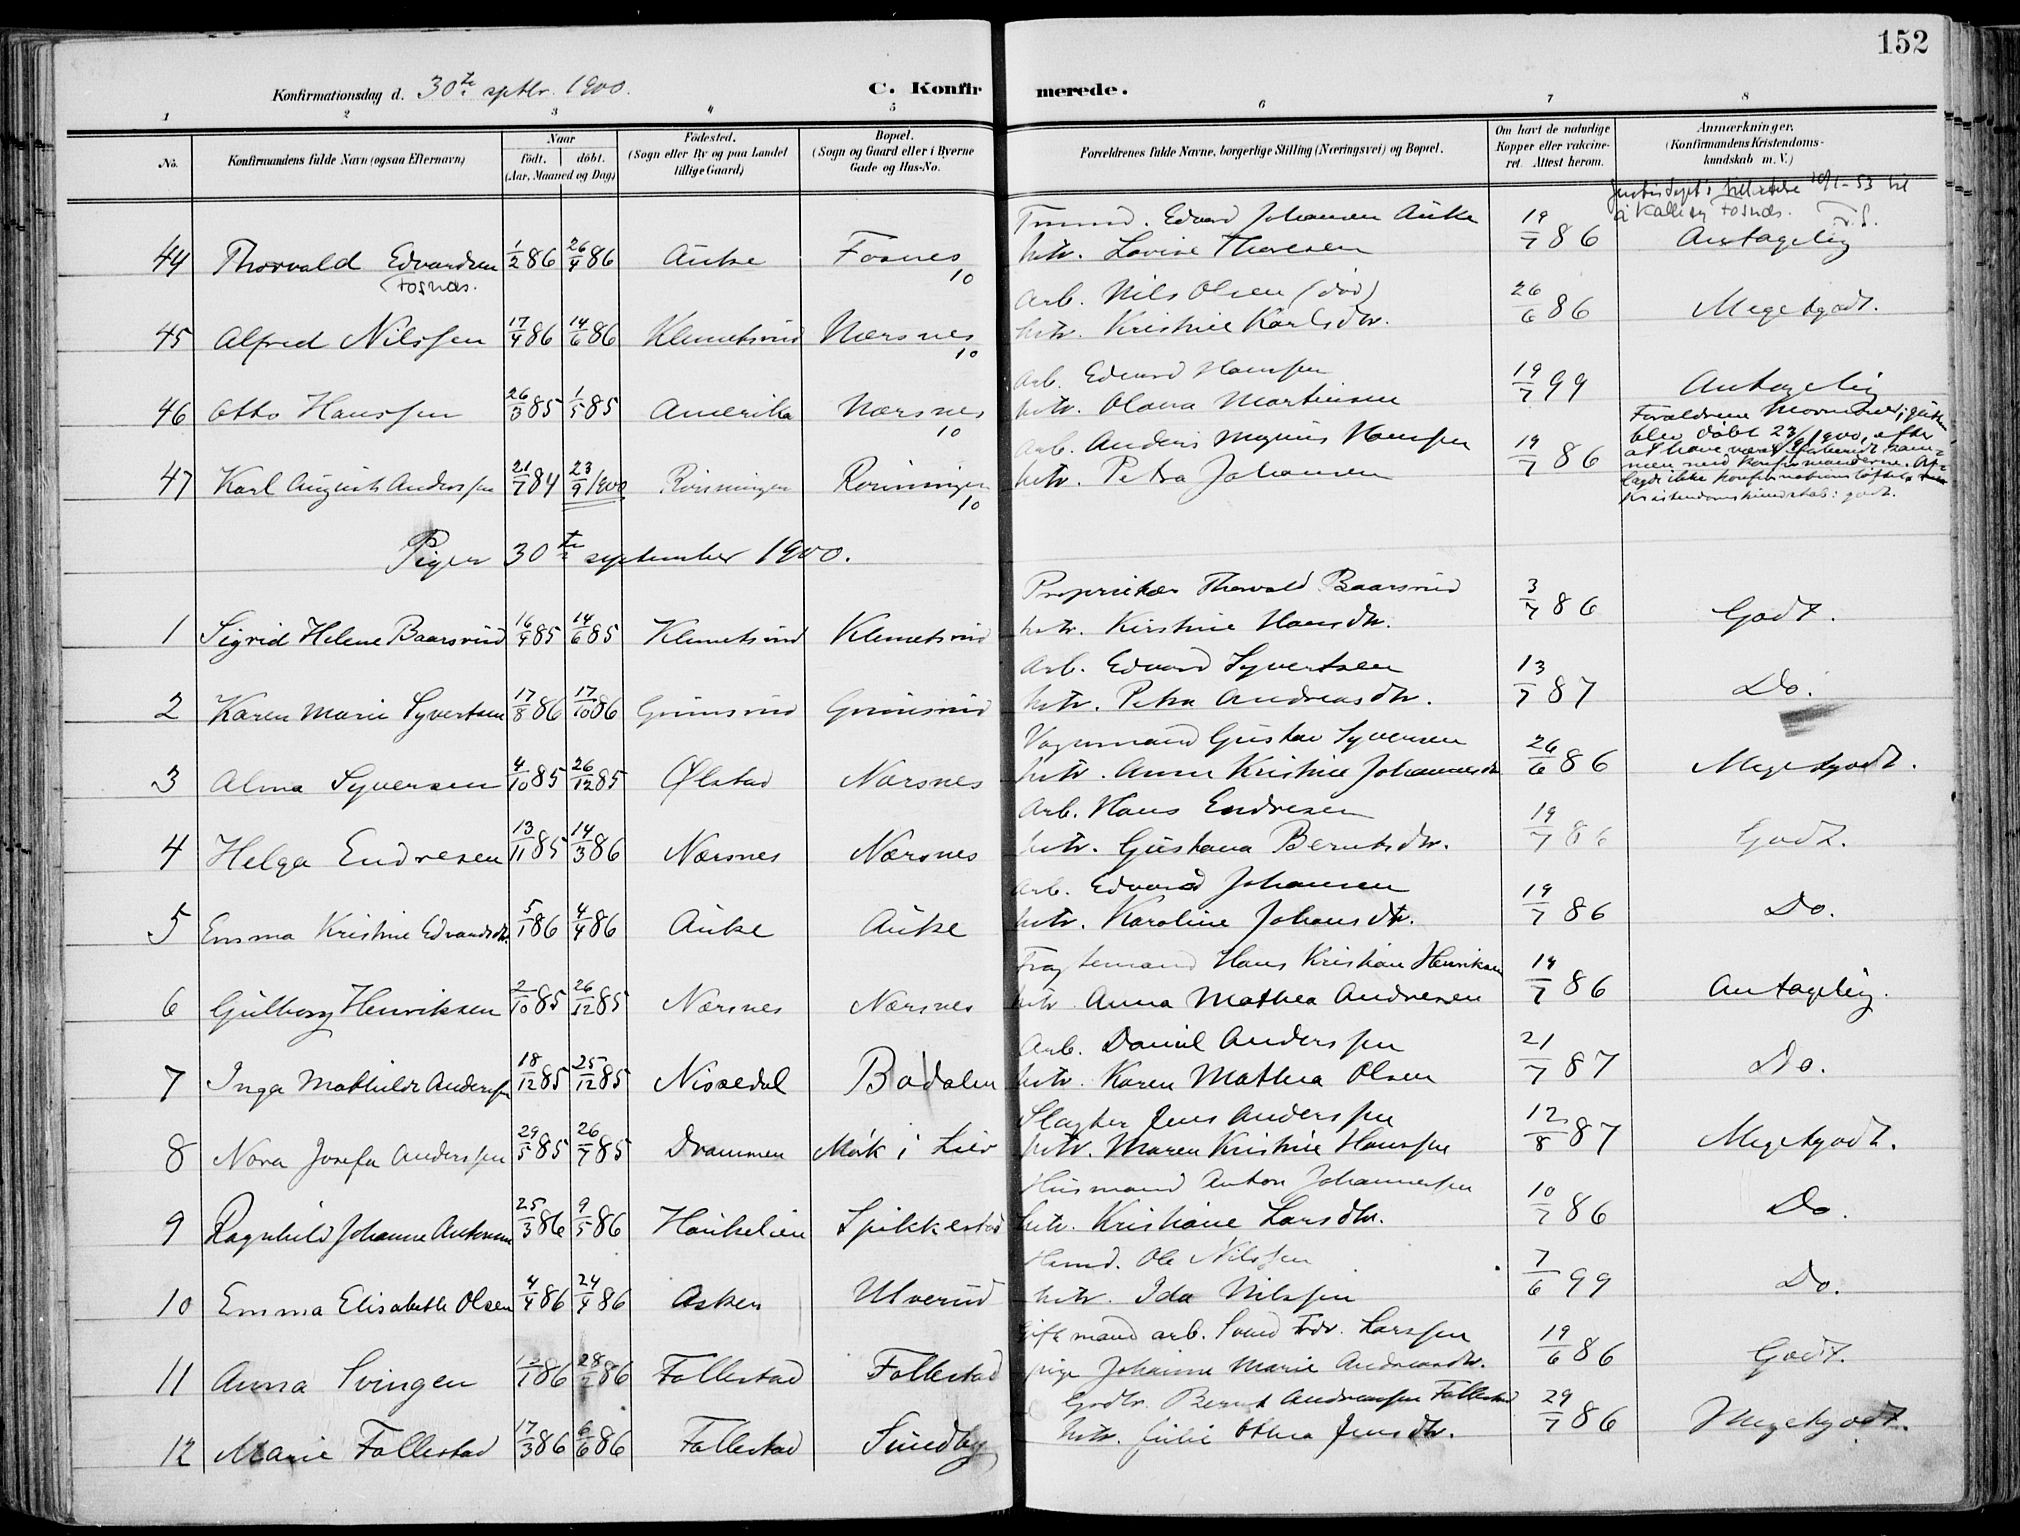 152
Konfirmationsdag d. 30te septbr. 1900.
C. Konfirmerede.
1 2 3 4 5 6 7 8
No. Konfirmandens fulde Navn (ogsaa Efternavn) Naar født. døbt. (Aar, Maaned og Dag) Fødested. (Sogn eller By og paa Landet tillige Gaard) Bopæl. (Sogn og Gaard eller i Byerne Gade og Hus-No. Forældrenes fulde Navne, borgerlige Stilling (Næringsvei) og Bopæl. Om havt de naturlige Kopper eller vakcineret. Attest herom. Anmærkninger. (Konfirmandens Kristendomskundskab m. V.)
å kalle seg Fosnæs.
Edvard Johansen Auke
44 Thorvald Edvardsen 1/2 86 26/4 86 Auke Fosnes hstr. Lovise Thoresen 19/7 86 Antagelig
Fosnæs. 10
Arb. Nils Olsen (død)
45 Alfred Nilssen 17/4 86 14/6 86 Klemetsrud Nærsnes hstr. Kristine Karlsdtr. 26/6 86 Megetgodt.
10
Arb. Edvard Hanssen
46 Otto Hanssen 26/3 85 1/5 85 Amerika Nærsnes hstr. Olava Martinsen 19/7 99 Antagelig
10
Arb. Anders Magnus Hanssen
47 Karl August Anderssen 21/7 84 23/9 1900 Rønningen Rønningen hstr. Petra Johansen 19/7 86
10
Forældrene Mormoner; gutten
blev døbt 23/9 1900, efter
at have været forberedt sammen
med konfirmanderne. Aflagde
ikke konfirmationsløftet.
Kristendomskundskab: godt.
Piger 30te september 1900.
Proprietær Thorvald Baarsrud
1 Sigrid Helene Baarsrud 16/4 85 14/6 85 Klemetsrud Klemetsrud hstr. Kirstine Hansdtr. 3/7 86 Godt.
Arb. Edvard Syvertsen
2 Karen Marie Syvertsen 17/8 86 17/10 86 Grimsrud Grimsrud hstr. Petra Andreasdtr. 13/7 87 Do.
Vognmand Gustav Syversen
3 Alma Syversen 4/10 85 26/12 85 Ølstad Nærsnes hstr. Anne Kristine Johannesdtr 26/6 86 Megetgodt.
Arb. Hans Endresen
4 Helga Endresen 13/11 85 14/3 86 Nærsnes Nærsnes hstr. Gustava Berntsdtr. 19/7 86 Godt.
Arb. Edvard Johansen
5 Emma Kristine Edvardsdtr. 5/1 86 4/4 86 Auke Auke hstr. Karoline Johansdtr. 19/7 86 Do.
Fragtemand Hans Kristian Henriksen
6 Gulborg Henriksen 2/10 85 26/12 85 Nærsnes Nærsnes hstr. Anna Mathea Andresen 19/7 86 Antagelig.
Arb. Daniel Anderssen
7 Inga Mathilde Anderssen 18/12 85 25/12 85 Nissedal Bødalen hstr. Karen Mathea Olsen 21/7 87 Do.
Slagter Jens Anderssen
8 Nora Josefa Anderssen 29/5 85 26/7 85 Drammen Mørk i Lier hstr. Maren Kristine Hanssen 12/8 87 Megetgodt.
Husmand Anton Johannessen
9 Ragnhild Johanne Antonsen 25/3 86 9/5 86 Haukelien Spikkestad hstr. Kristiane Larsdtr. 10/7 86 Do.
Husmd. Ole Nilssen
10 Emma Elisabeth Olsen 4/4 86 24/4 86 Asker Ulverud hstr. Ida Nilssen 7/6 99 Do.
Gift mand arb. Svend Fdr. Larssen
11 Anna Svingen 86 28/2 86 Follestad Follestad pige Johanne Marie Andreasdtr. 19/6 86 Godt.
Gaardbr. Bernt Andreassen Follestad
12 Marie Follestad 17/3 86 6/6 86 Follestad Sundby hstr. Julie Othea Jensdtr. 29/7 86 Megetgodt.